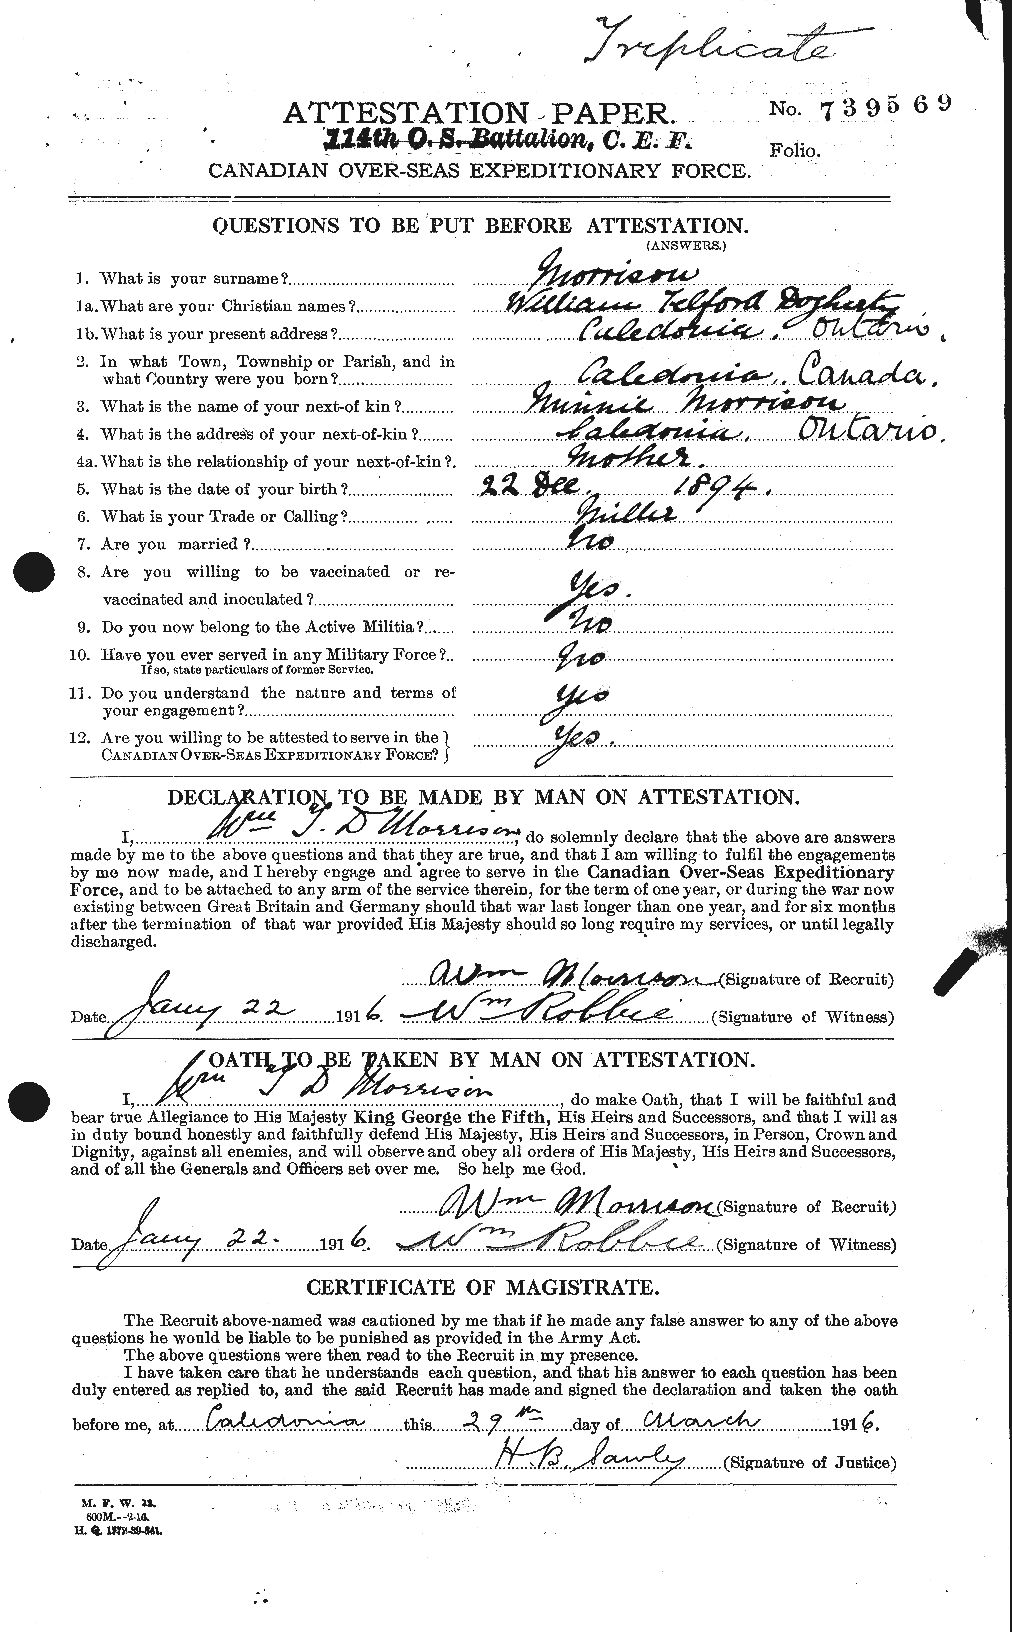 Triplicate
ATTESTATION PAPER. No. 739569
114th O. S. Battalion, C. E. F.
Folio.
CANADIAN OVER-SEAS EXPEDITIONARY FORCE.
QUESTIONS TO BE PUT BEFORE ATTESTATION.
(ANSWERS.)
1. What is your surname? Morrison
1a. What are your Christian names? William Telford Dogherty
1b. What is your present address? Caledonia. Ontario.
2. In what Town, Township or Parish, and in
what Country were you born? Caledonia, Canada.
3. What is the name of your next-of kin? Minnie Morrison
4. What is the address of your next-of-kin? Caledonia. Ontario.
4a. What is the relationship of your next-of-kin? Mother.
5. What is the date of your birth? 22 Dec. 1894.
6. What is your Trade or Calling? Miller
7. Are you married? No
8. Are you willing to be vaccinated or re-
vaccinated and inoculated? Yes.
9. Do you now belong to the Active Militia? No
10. Have you ever served in any Military Force? No
If so, state particulars of former Service.
11. Do you understand the nature and terms of
your engagement? Yes
12. Are you willing to be attested to serve in the
CANADIAN OVER-SEAS EXPEDITIONARY FORCE? Yes.
DECLARATION TO BE MADE BY MAN ON ATTESTATION.
I, Wm T. D Morrison, do solemnly declare that the above are answers
made by me to the above questions and that they are true, and that I am willing to fulfil the engagements
by me now made, and I hereby engage and agree to serve in the Canadian Over-Seas Expeditionary
Force, and to be attached to any arm of the service therein, for the term of one year, or during the war now
existing between Great Britain and Germany should that war last longer than one year, and for six months
after the termination of that war provided His Majesty should so long require my services, or until legally
discharged.
Wm Morrison (Signature of Recruit)
Date Jany 22 1916. Wm Robbie (Signature of Witness)
OATH TO BE TAKEN BY MAN ON ATTESTATION.
I, Wm T D Morrison, do make Oath, that I will be faithful and
bear true Allegiance to His Majesty King George the Fifth, His Heirs and Successors, and that I will as
in duty bound honestly and faithfully defend His Majesty, His Heirs and Successors, in Person, Crown and
Dignity, against all enemies, and will observe and obey all orders of His Majesty, His Heirs and Successors,
and of all the Generals and Officers set over me. So help me God.
Wm Morrison (Signature of Recruit)
Date Jany 22. 1916. Wm Robbie (Signature of Witness)
CERTIFICATE OF MAGISTRATE.
The Recruit above-named was cautioned by me that if he made any false answer to any of the above
questions he would be liable to be punished as provided in the Army Act.
The above questions were then read to the Recruit in my presence.
I have taken care that he understands each question, and that his answer to each question has been
duly entered as replied to, and the said Recruit has made and signed the declaration and taken the oath
before me, at Caledonia this 29th day of March 1916.
H B. Sawle (Signature of Justice)
M. F. W. 23.
600M.--2-16.
H. Q. 1772-39-841.